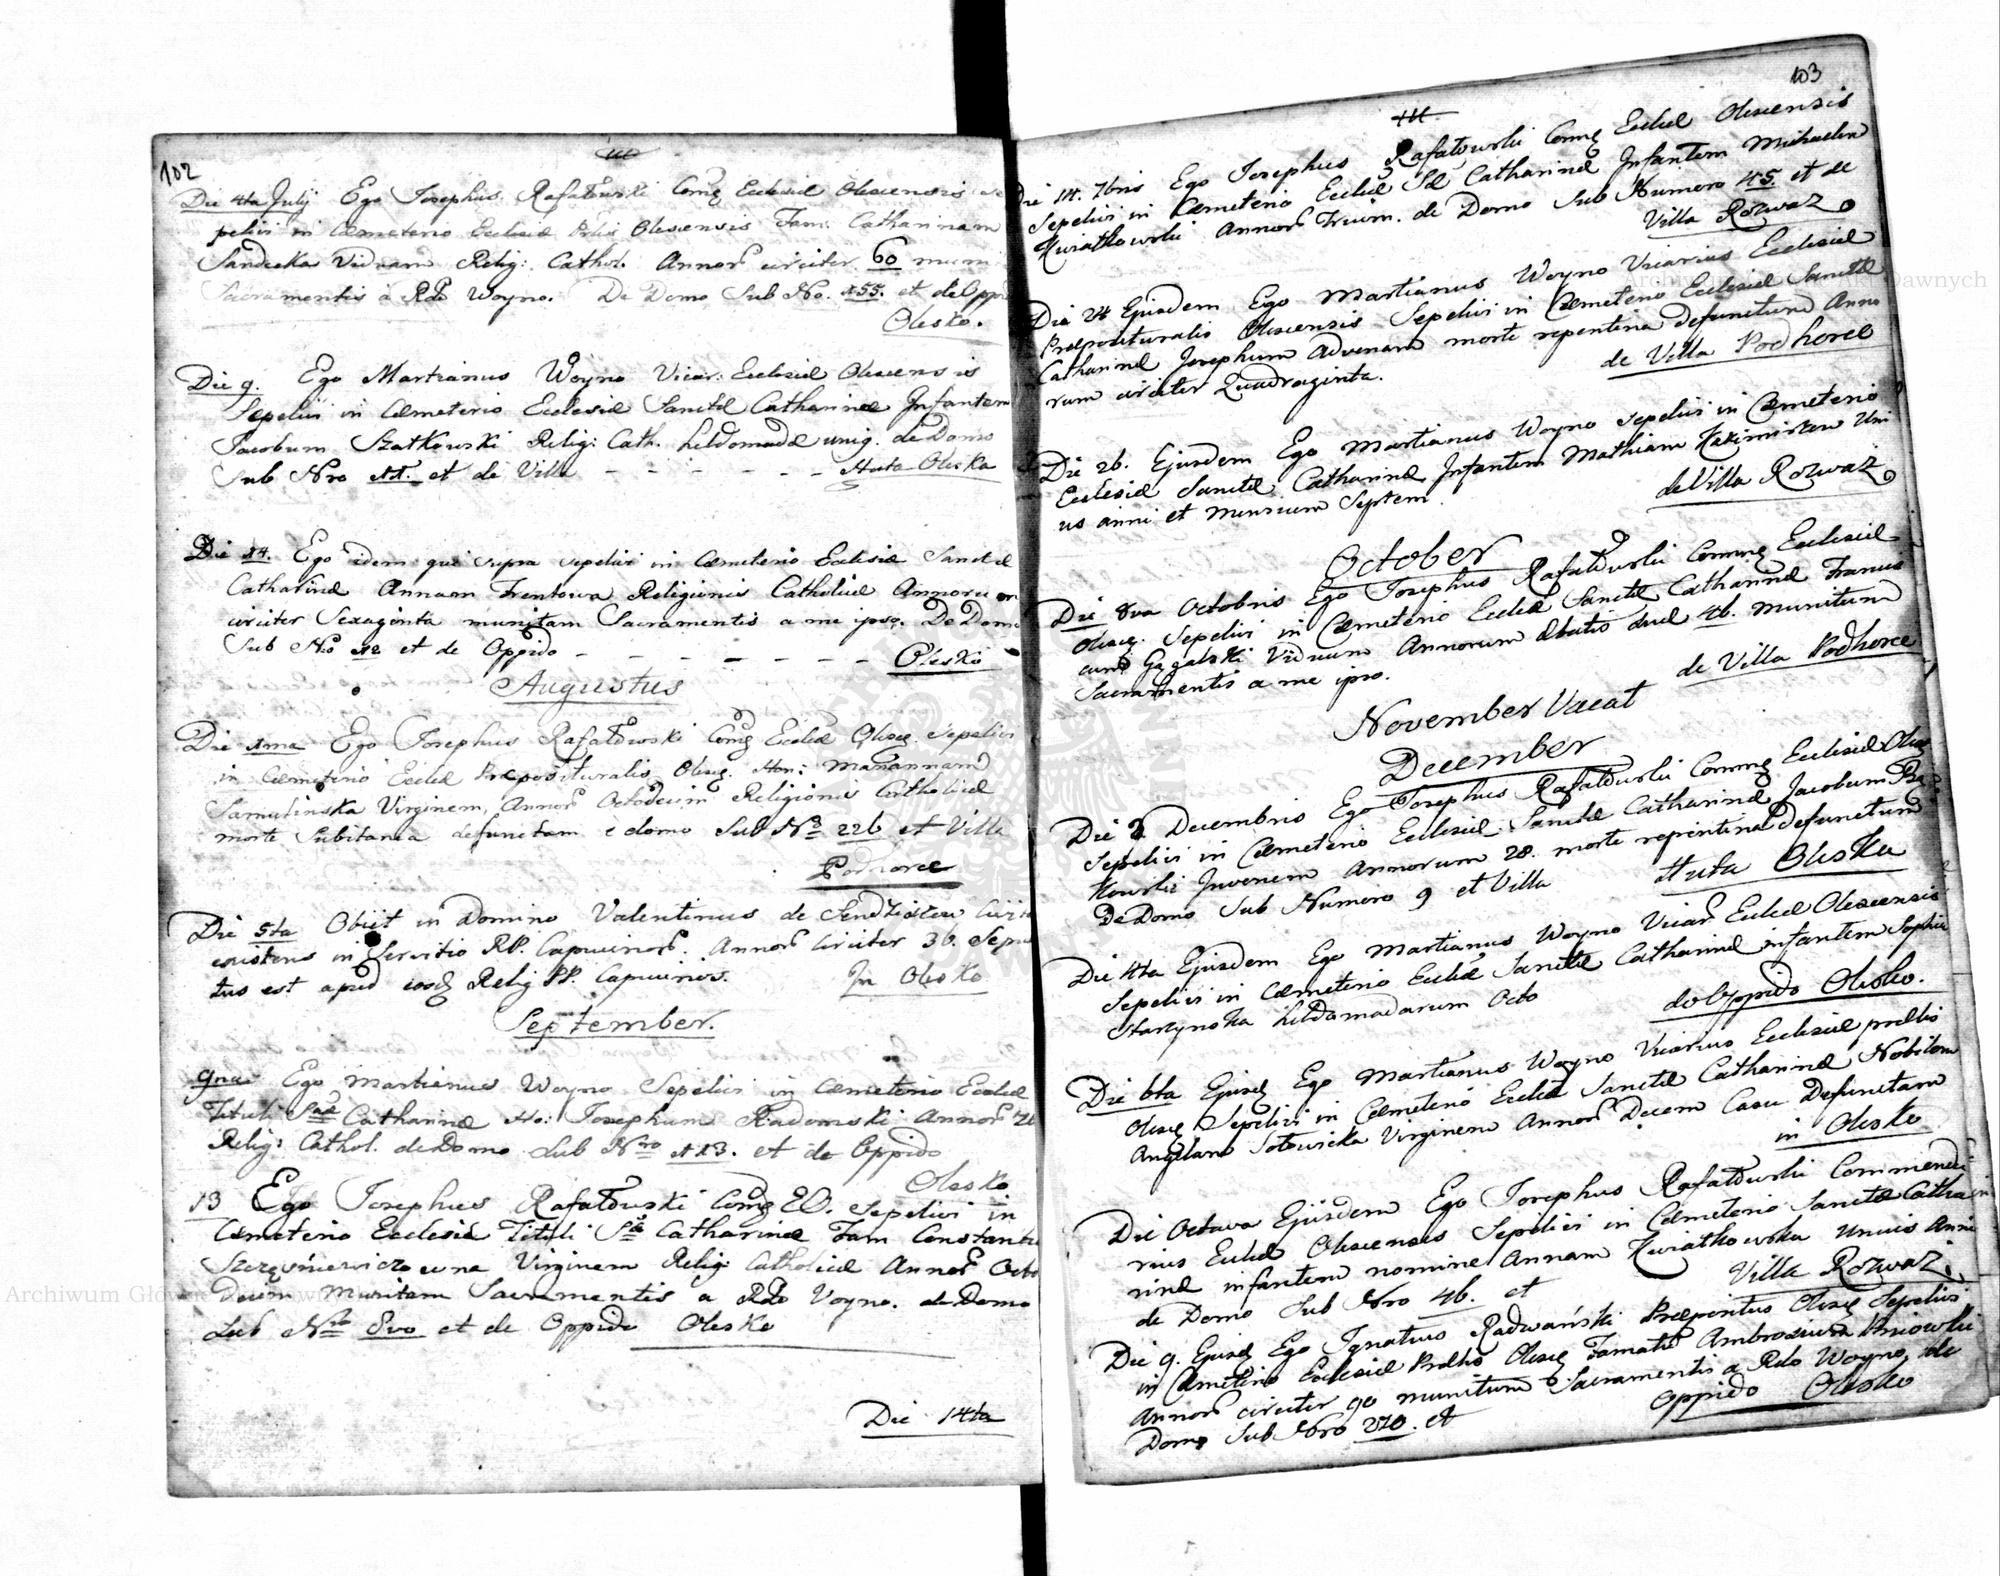 102
Die 4ta Julij Ego Josephus Rafałowski Comę Ecclesiæ Olescensis se
pelivi in Cæmeterio Ecclesiæ Olescensis Fam: Catharinam
Viduam Relig: Cathol. Annor circiter 60 muni
Sacramentis à Rdo Woyno. De Domo Sub No. 155. et de Oppi
Olesko.
Die 9. Ego Martianus Woyno Vicar: Ecclesiæ Olescensis
Sepelivi in Cæmeterio Ecclesiæ Sanctæ Catharinæ Infantem
Jacobum Szatkowski Relig: Cath. hebdomadæ unig. de Domo
Sub Nro et de Villa - - - - - - Huta Oleska
Die 14. Ego idem qui supra sepelivi in Cæmeterio Ecclesiæ Sanctæ
Catharinæ Annam Frentowa Religionis Catholicæ Annorum
circiter Sexaginta munitam Sacramentis a me ipso. De Domo
Sub Nro 12 et de Oppido - - - - - - - Olesko
Augustus
Die 1ma Ego Josephus Rafałowski Comę Eccliæ Olescę. Sepelivi
in Cæmeterio Eccliæ Præposituralis Olescę. Hon: Mariannam
Samulinska Virginem, Annor Octodecim Religionis Catholicæ
morte Subitanea defunctam e domo Sub Nro 226 et Villa
Podhorce
Die 5ta Obiit in Domino Valentinus de
existens in Servitio RP. Capucinor. Annor Circiter 36. Sepul
tus est apud eosdę Relig PP. Capucinos. In Olesko
September.
9na Ego Martianus Woyno Sepelivi in Cæmeterio Eccliæ
Tituli Stæ Catharinæ Ho: Josephum Radomski Annor
Relig: Cathol. de Domo Sub Nro 113. et de Oppido
Olesko
13 Ego Josephus Rafałowski Comę EO. Sepelivi in
Cæmeterio Ecclesiæ Tituli Stæ Catharinæ Fam Constanti
Virginem Relig: Catholicæ Annor Octo
Decim Munitam Sacramentis a Rdo Woyno. de Domo
Sub Nro 8vo et de Oppido Olesko
Die 14ta
103
Die 14. 7bris Ego Josephus Rafałowski Comę Eccliæ Olescensis
Sepelivi in Cæmeterio Eccliæ Stæ Catharinæ Infantem Michaelem
Kwiatkowski Annor Trium. de Domo Sub Numero 45. et de
Villa Rozwaz
Die 24 Ejusdem Ego Martianus Woyno Vicarius Ecclesiæ
Præposituralis Olescensis Sepelivi in Cæmeterio Ecclesiæ Sanctæ
Catharinæ Josephum Advenam morte repentina defunctum Anno
rum circiter Quadraginta. de Villa Podhorce
Die 26. Ejusdem Ego Martianus Woyno Sepelivi in Cæmeterio
Ecclesiæ Sanctæ Catharinæ Infantem Mathiam Kazimirzem Uni
us anni et mensium Septem. de Villa Rozwaz
October
Die 8va Octobris Ego Josephus Rafałowski Commę Ecclesiæ
Olescę. Sepelivi in Cæmeterio Eccliæ Sanctæ Catharinæ Francis
cum Viduum Annorum Ætatis suæ 46. munitum
Sacramentis a me ipso. de Villa Podhorce
November Vacat
December
Die 2 Decembris Ego Josephus Rafałowski Commę Ecclesiæ Olescę
Sepelivi in Cæmeterio Ecclesiæ Sanctæ Catharinæ Jacobum
kowski Juvenem Annorum 28. morte repentina defunctum
De Domo Sub Numero 9 et Villa Huta Oleska
Die 4ta Ejusdem Ego Martianus Woyno Vicar Eccliæ Olescensis
Sepelivi in Cæmeterio Eccliæ Sanctæ Catharinæ infantem Sophia
Starzynska hebdomadarum Octo de Oppido Olesko.
Die 6ta Ejusdę Ego Martianus Woyno Vicarius Ecclesiæ prælis
Olescę Sepelivi in Cæmeterio Eccliæ Sanctæ Catharinæ Nobilem
Angelam Virginem Annor Decem Casu Defunctam
in Olesko
Die Octava Ejusdem Ego Josephus Rafałowski Commenda
rius Eccliæ Olescensis Sepelivi in Cæmeterio Sanctæ Catha
rinæ infantem nomine Annam Kwiatkowska Unius Anni
de Domo Sub Nro 46. et Villa Rozwaz.
Die 9. Ejusdę Ego Ignatius Radwański Præpositus Olescę Sepelivi
in Cæmeterio Ecclesiæ Prælis Olescę Famatū Ambrosium
Annor circiter 90 munitum Sacramentis a Rdo Woyno. de
Domo Sub Nro 270. et Oppido Olesko